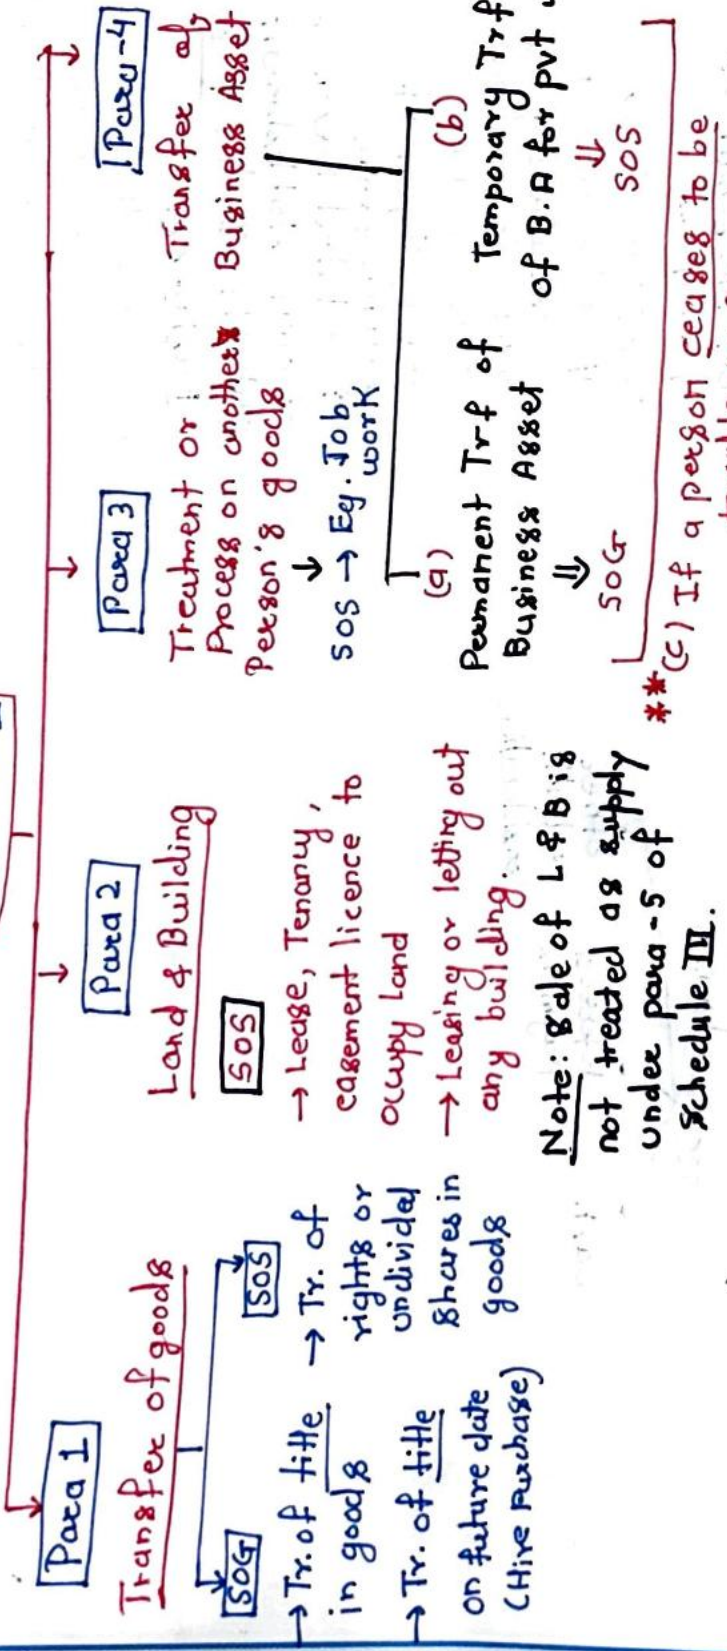 Para 1
Transfer of goods
SOG
→ Tr. of title
in goods
→ Tr. of title
on future date
(Hire Purchase)
SOS
→ Tr. of
rights or
undivided
shares in
goods
Para 2
Land & Building
SOS
→ Lease, Tenancy,
easement licence to
occupy Land
→ Leasing or letting out
any building.
Note: sale of L & B is
not treated as supply
under para-5 of
Schedule III.
Para 3
Treatment or
Process on another
Person's goods
↓
SOS → Eg. Job
work
Para-4
Transfer of
Business Asset
(a)
Permanent Trf of
Business Asset
⇓
SOG
(b)
Temporary Trf
of B.A for pvt
⇓
SOS
**(c) If a person ceases to be